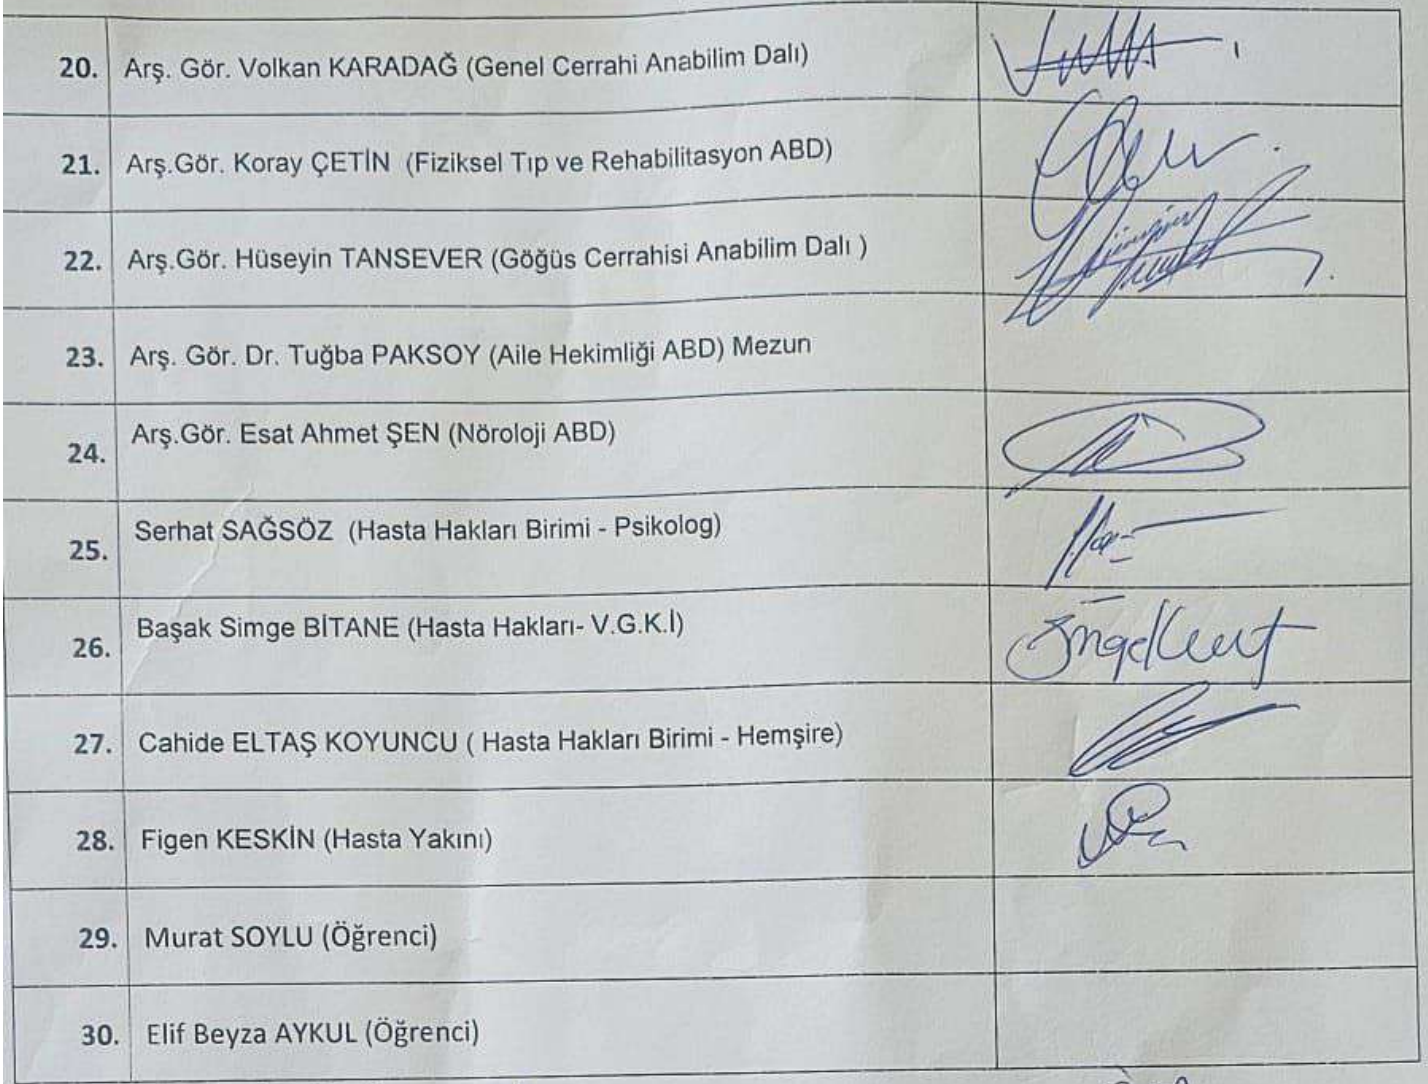 20. Arş. Gör. Volkan KARADAĞ (Genel Cerrahi Anabilim Dalı)
21. Arş.Gör. Koray ÇETİN (Fiziksel Tıp ve Rehabilitasyon ABD)
22. Arş.Gör. Hüseyin TANSEVER (Göğüs Cerrahisi Anabilim Dalı )
23. Arş. Gör. Dr. Tuğba PAKSOY (Aile Hekimliği ABD) Mezun
24. Arş.Gör. Esat Ahmet ŞEN (Nöroloji ABD)
25. Serhat SAĞSÖZ (Hasta Hakları Birimi - Psikolog)
26. Başak Simge BİTANE (Hasta Hakları- V.G.K.İ)
27. Cahide ELTAŞ KOYUNCU ( Hasta Hakları Birimi - Hemşire)
28. Figen KESKİN (Hasta Yakını)
29. Murat SOYLU (Öğrenci)
30. Elif Beyza AYKUL (Öğrenci)